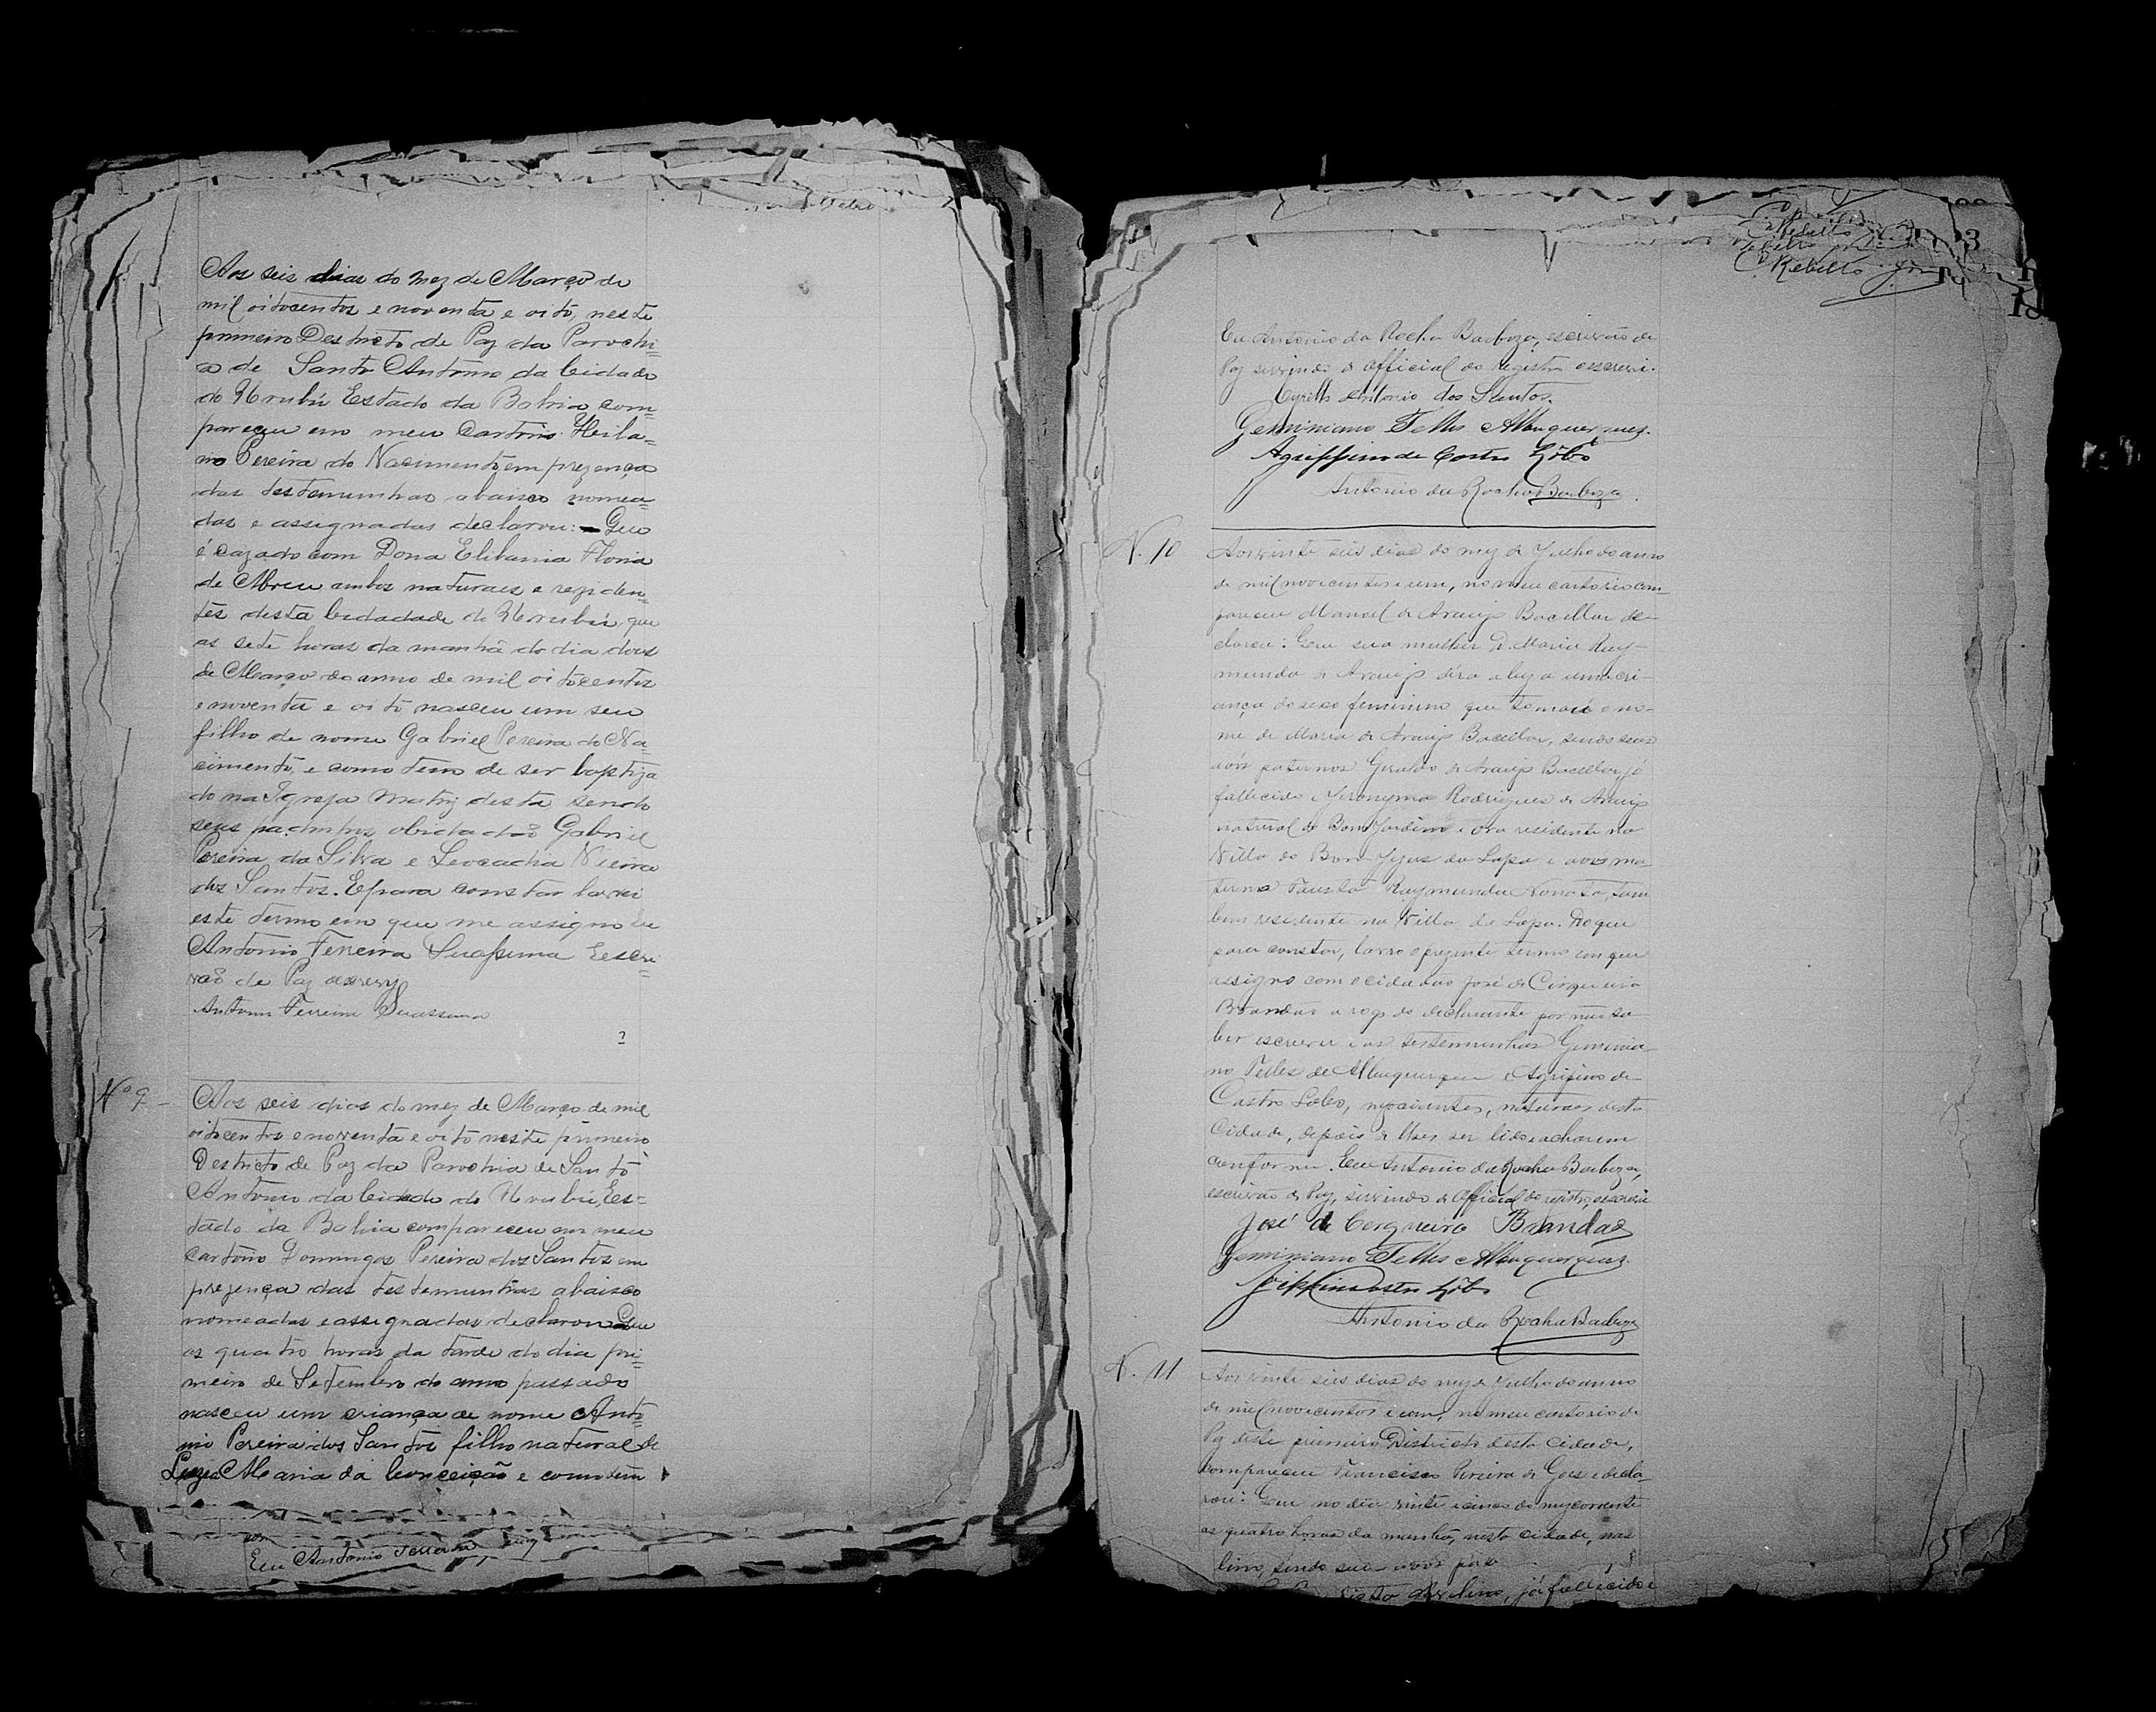 Aos seis dias do mez de Março de
mil oitocentos e noventa e oito, neste
primeiro Destricto de Paz da Parochi=
a de Santo Antonio da Cidade
do Urubú Estado da Bahia, com=
pareceu em meu Cartorio Heila=
rio Pereira do Nacimento em prezença
das testemunhas abaixo nomea=
das e assignadas declarou: - Que
é cazado com Dona Elibania Floria
de Abreu ambos naturaes e reziden=
tes desta Cidadade do Urubú, que
as sete horas da manhã do dia dous
de Março do anno de mil oitocentos
e noventa e oito nasceu um seu
filho de nome Gabriel Pereira do Na=
cimento, e como tem de ser baptiza
do na Igreja Matriz desta sendo
seus padrinhos o Cidadão Gabriel
Pereira da Silva e Leocacha Vieira
dos Santos. E para constar lavrei
este termo em que me assigno Eu
Antonio Ferreira Suassuna Escri=
vaõ de Paz escrevy
Antonio Ferreira Suassuna
Nº 9 - Aos seis dias do mez de Março de mil
oitocentos e noventa e oito neste primeiro
Destricto de Paz da Parochia de Santo
Antonio da Cidade do Urubú, Es=
tado da Bahia compareceu em meu
cartorio Domingos Pereira dos Santos em
prezença das testemunhas abaixo
nomeadas e assignadas declarou Que
as quatro horas da tarde do dia pri=
meiro de Setembro do anno passado
nasceu um criança de nome Anto=
nio Pereira dos Santos filho natural de
Luzia Maria da Conceição e como tem
Eu Antonio Ferreira
Rebello
Eu Antonio da Rocha Barboza, escrivão de
Paz servindo de Official do registro o escrevi.
Cyrillo Antonio dos Santos.
Geminiano Telles Albuquerques.
Agrippino de Castro Lôbo
Antonio da Rocha Barboza.
N. 10 Aos vinte seis dias do mez de Julho do anno
de mil novecentos e um, no meu cartorio com-
pareceu Manoel de Araujo Bacellar de-
clarou: Que sua mulher D. Maria Ray-
munda de Araujo déra a luz a uma cri-
ança do sexo feminino que tomará o no-
me de Maria de Araujo Bacellar, sendo seus
avós paternos Geraldo de Araujo Bacellar, já
fallecido e Jeronyma Rodrigues de Araujo
natural do Bom Jardim e ora residente na
Villa do Bom Jezus da Lapa e avos ma
terno Fausto Raymundo Nonato, tam
bem residente na Villa da Lapa. Do que
para constar, lavro o prezente termo em que
assigno com o cidadão José de Cirqueira
Brandão a rogo do declarante por não sa-
ber escrever e as testemunhas Geminia-
no Telles de Albuquerque e Agripino de
Castro Lobo, negociantes, naturaes desta
Cidade, depois de lhes ser lido e acharem
conforme. Eu Antonio da Rocha Barboza,
escrivão de Paz, servindo de Official do registro, o escrevi
José de Cerqueira Brandão
Geminiano Telles Albuquerques.
Lôbo
Antonio da Rocha Barboza
N. 11 Aos vinte seis dias do mez de Julho do anno
de mil novecentos e um, no meu cartorio de
Paz deste primeiro Districto desta Cidade,
compareceu Francisco Pereira de Goes e decla-
rou: Que no dia vinte e cinco do mez corrente
as quatro horas da manhã, nesta cidade, nas
sendo seus avós
já fallecido e